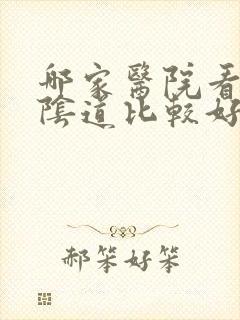 哪家醫院看
陰道比較好
郝笨好笨